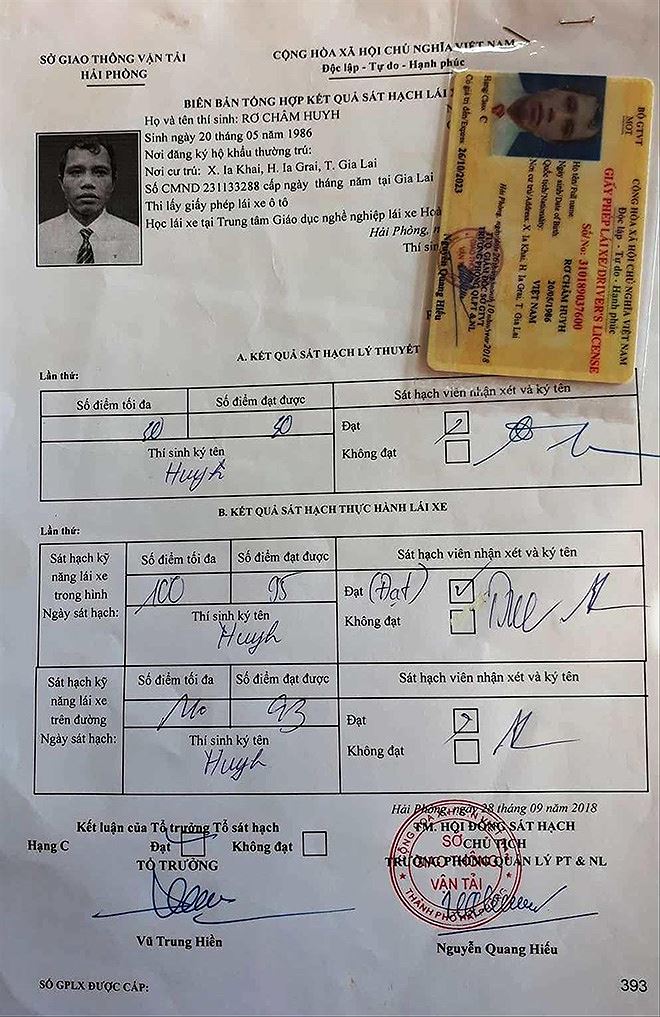 SỞ GIAO THÔNG VẬN TẢI
HẢI PHÒNG
CỘNG HÒA XÃ HỘI CHỦ NGHĨA VIỆT NAM
Độc lập - Tự do - Hạnh phúc
BIÊN BẢN TỔNG HỢP KẾT QUẢ SÁT HẠCH LÁI
Họ và tên thí sinh: RƠ CHÂM HUYH
Sinh ngày 20 tháng 05 năm 1986
Nơi đăng ký hộ khẩu thường trú:
Nơi cư trú: X. Ia Khai, H. Ia Grai, T. Gia Lai
Số CMND 231133288 cấp ngày tháng năm tại Gia Lai
Thi lấy giấy phép lái xe ô tô
Học lái xe tại Trung tâm Giáo dục nghề nghiệp lái xe Hoà
Hải Phòng,
Thí sin
BỘ GTVT
MOT
CỘNG HÒA XÃ HỘI CHỦ NGHĨA VIỆT NAM
Độc lập - Tự do - Hạnh phúc
GIẤY PHÉP LÁI XE/DRIVER'S LICENSE
Số/No: 310189037600
Họ tên/Full name: RƠ CHÂM HUYH
Ngày sinh/Date of Birth: 20/05/1986
Quốc tịch/Nationality: VIỆT NAM
Nơi cư trú/Address: X. Ia Khai, H. Ia Grai, T. Gia Lai
Hạng/Class: C
Có giá trị đến/Expires: 26/10/2023
TRƯỞNG PHÒNG QLPT & NL
Nguyễn Quang Hiếu
A. KẾT QUẢ SÁT HẠCH LÝ THUYẾT
Lần thứ:
Số điểm tối đa Số điểm đạt được Sát hạch viên nhận xét và ký tên
30 30 Đạt
Thí sinh ký tên Không đạt
Huyh
B. KẾT QUẢ SÁT HẠCH THỰC HÀNH LÁI XE
Lần thứ:
Sát hạch kỹ năng lái xe trong hình Số điểm tối đa Số điểm đạt được Sát hạch viên nhận xét và ký tên
100 95 Đạt (Đạt)
Ngày sát hạch: Thí sinh ký tên Không đạt
Huyh
Sát hạch kỹ năng lái xe trên đường Số điểm tối đa Số điểm đạt được Sát hạch viên nhận xét và ký tên
93 Đạt
Ngày sát hạch: Thí sinh ký tên Không đạt
Huyh
Hải Phòng, ngày 28 tháng 09 năm 2018
Kết luận của Tổ trưởng Tổ sát hạch
TM. HỘI ĐỒNG SÁT HẠCH
Hạng C Đạt Không đạt
CHỦ TỊCH
TỔ TRƯỞNG
TRƯỞNG PHÒNG QUẢN LÝ PT & NL
SỞ
GIAO THÔNG
VẬN TẢI
Vũ Trung Hiền
Nguyễn Quang Hiếu
SỐ GPLX ĐƯỢC CẤP:
393